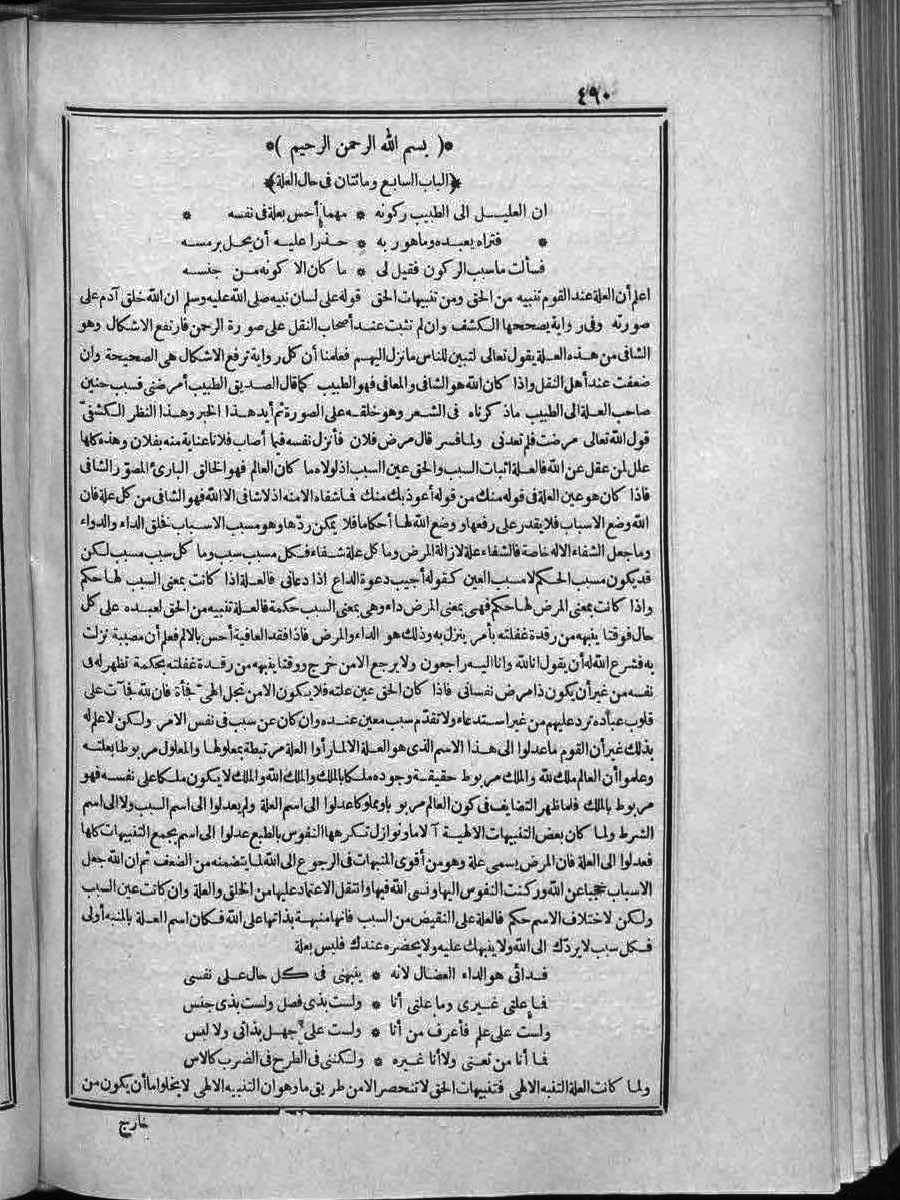 ٤٩٠
*( بسم الله الرحمن الرحيم )*
﴿الباب السابع ومائتان فى حال العلة﴾
ان العليــل الى الطبيب ركونه * مهما أحس بعلة فى نفسه *
* فتراه يعبده وما هو ربه * حذرا عليه أن يحل برمسه
فسألت ما سبب الركون فقيل لى * ما كان الا كونه من جنسه
اعلم أن العلة عند القوم تنبيه من الحق ومن تنبيهات الحق قوله على لسان نبيه صلى الله عليه وسلم ان الله خلق آدم على
صورته وفى رواية يصححها الكشف وان لم تثبت عند أصحاب النقل على صورة الرحمن فارتفع الاشكال وهو
الشافى من هذه العلة يقول تعالى لتبين للناس ما نزل اليهم فعلمنا أن كل رواية ترفع الاشكال هى الصحيحة وان
ضعفت عند أهل النقل واذا كان الله هو الشافى والمعافى فهو الطبيب كما قال الصديق الطبيب أمرضنى فسبب حنين
صاحب العلة الى الطبيب ما ذكرناه فى الشعر وهو خلقه على الصورة ثم أيد هذا الخبر وهذا النظر الكشفىّ
قول الله تعالى مرضت فلم تعدنى ولما فسر قال مرض فلان فأنزل نفسه فيما أصاب فلانا عناية منه بفلان وهذه كلها
علل لمن عقل عن الله فالعلة اثبات السبب والحق عين السبب اذ لولاه ما كان العالم فهو الخالق البارئ المصوّر الشافى
فاذا كان هو عين العلة فى قوله منك من قوله أعوذ بك منك فاشفاه الا منه اذ لا شافى الا الله فهو الشافى من كل علة فان
الله وضع الاسباب فلا يقدر على رفعها ووضع الله لها أحكاما فلا يمكن ردّها وهو مسبب الاسباب فخلق الداء والدواء
وما جعل الشفاء الا له خاصة فالشفاء علة لازالة المرض وما كل علة شفاء فكل مسبب سبب وما كل سبب مسبب لكن
قد يكون مسبب الحكم لا مسبب العين كقوله أجيب دعوة الداع إذا دعانى فالعلة اذا كانت بمعنى السبب لها حكم
واذا كانت بمعنى المرض لها حكم فهى بمعنى المرض داء وهى بمعنى السبب حكمة فالعلة تنبيه من الحق لعبده على كل
حال فوقتا ينبهه من رقدة غفلته بأمر ينزل به وذلك هو الداء والمرض فاذا فقد العافية أحس بالالم فعلم أن مصيبة نزلت
به فشرع الله له أن يقول انا لله وانا اليه راجعون ولا يرجع الا من خرج ووقتا ينبهه من رقدة غفلته بحكمة تظهر له فى
نفسه من غير أن يكون ذا مرض نفسانى فاذا كان الحق عين علته فلا يكون الا من تجل الهىّ فجأة فان لله فجآت على
قلوب عباده ترد عليهم من غير استدعاء ولا تقدّم سبب معين عنده وان كان عن سبب فى نفس الامر ولكن لا علم له
بذلك غير أن القوم ما عدلوا الى هذا الاسم الذى هو العلة الا لما رأوا العلة مرتبطة بمعلولها والمعلول مربوطا بعلته
وعلموا أن العالم ملك لله والملك مربوط حقيقة وجوده ملكا بالملك والملك الله والملك لا يكون ملكا على نفسه فهو
مربوط بالملك فلما ظهر التضايف فى كون العالم مربوبا ومملوكا عدلوا الى اسم العلة ولم يعدلوا الى اسم السبب ولا الى اسم
الشرط ولما كان بعض التنبيهات الالهية آلاما ونوازل تكرهها النفوس بالطبع عدلوا الى اسم يجمع التنبيهات كلها
فعدلوا الى العلة فان المرض يسمى علة وهو من أقوى المنبهات فى الرجوع الى الله لما يتضمنه من الضعف ثم ان الله جعل
الاسباب حجبا عن الله وركنت النفوس اليها ونسى الله فيها وانتقل الاعتماد عليها من الخلق والعلة وان كانت عين السبب
ولكن لاختلاف الاسم حكم فالعلة على النقيض من السبب فانها منبهة بذاتها على الله فكان اسم العلة بالمنبه أولى
فكل سبب لا يردّك الى الله ولا ينبهك عليه ولا يحضره عندك فليس بعلة
فدائى هو الداء العضال لانه * ينبهنى فى كل حال على نفسى
فما علتى غيرى وما علتى أنا * ولست بذى فصل ولست بذى جنس
ولست على علم فأعرف من أنا * ولست على جهل بذاتى ولا لبس
فما أنا من تعنى ولا أنا غيره * ولكننى فى الطرح فى الضرب كالاس
ولما كانت العلة التنبه الالهى فتنبيهات الحق لا تنحصر الا من طريق ما وهو ان التنبيه الالهى لا يخلو اما أن يكون من
خارج